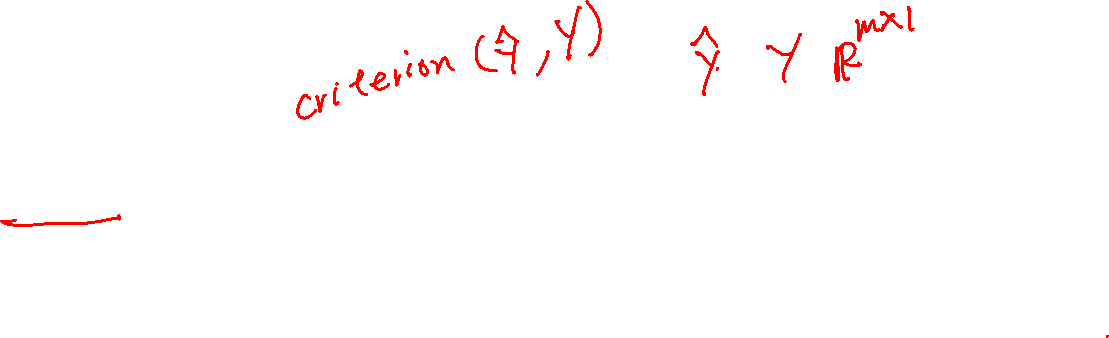 criterion (Ŷ, Y) Ŷ Y ℝ^{m×1}